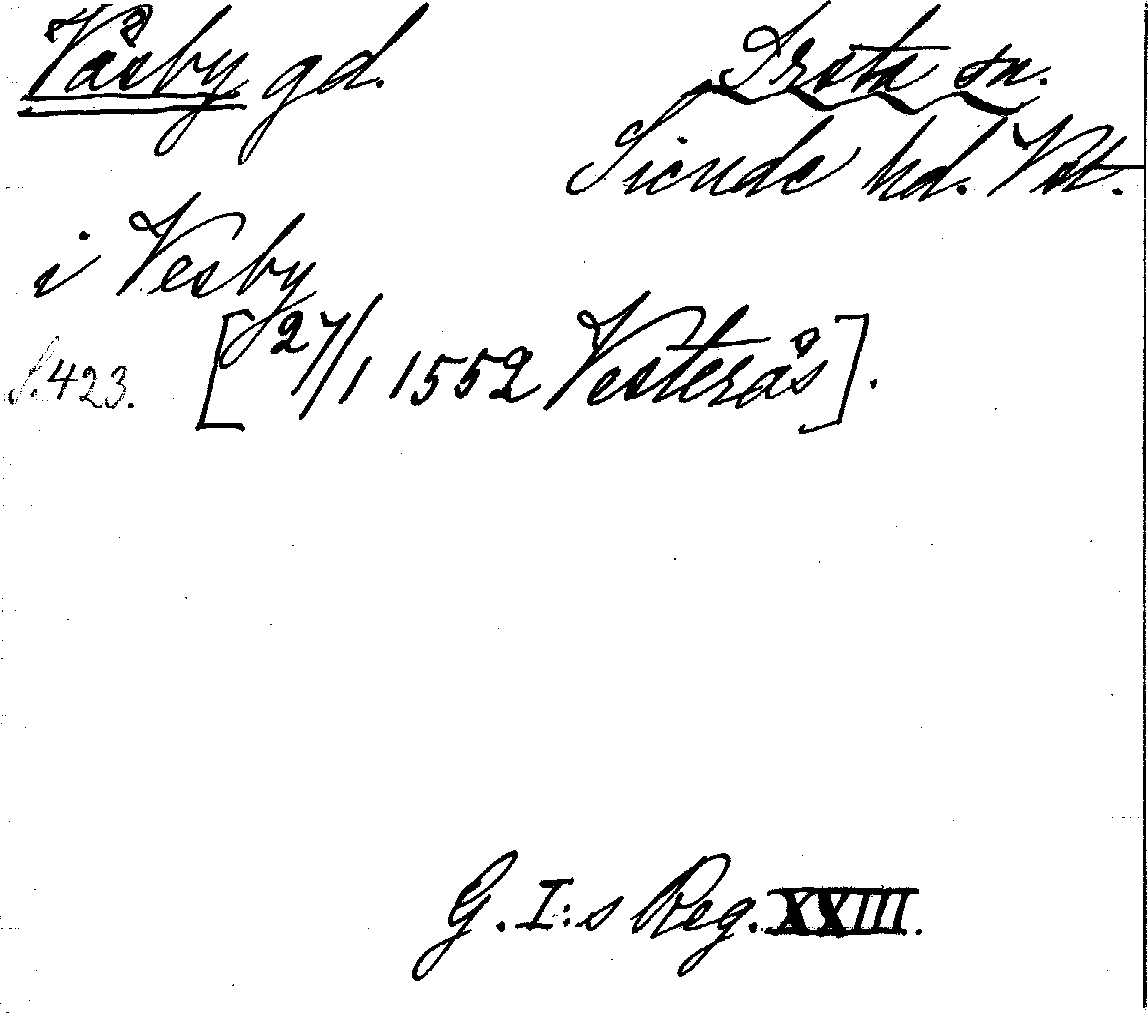 Våsby gd.
Irsta sn.
Siende hd. Vst.
i Vesby
S. 423. [27/1 1552 Vesterås].
G. I:s Reg. XXIII.